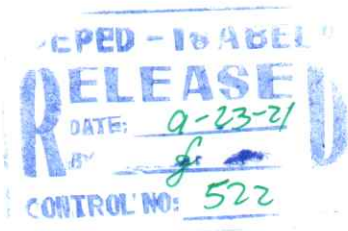 DEPED - ISABEL
RELEASED
DATE: 9-23-21
BY
CONTROL NO: 522